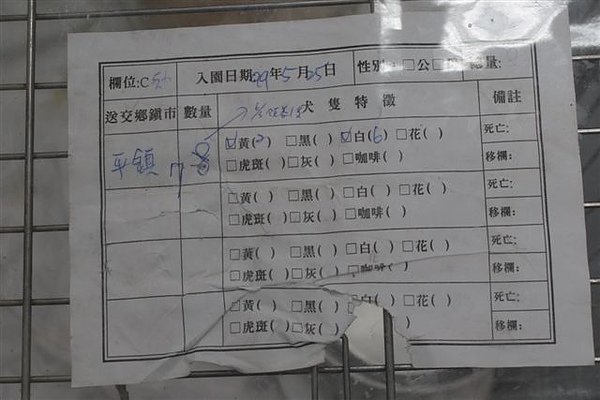 欄位:C 入園日期:99年5月25日 性別:□公□ 總量:
送交鄉鎮市 數量 犬隻特徵 備註
平鎮 7 8 ☑黃(2) □黑( ) ☑白(6) □花( ) 死亡:
□虎斑( ) □灰( ) □咖啡( ) 移欄:
□黃( ) □黑( ) □白( ) □花( ) 死亡:
□虎斑( ) □灰( ) □咖啡( ) 移欄:
□黃( ) □黑( ) □白( ) □花( ) 死亡:
□虎斑( ) □灰( ) □咖啡( ) 移欄:
□黃( ) □黑( ) □白( ) □花( ) 死亡:
□虎斑( ) □灰( ) 移欄: